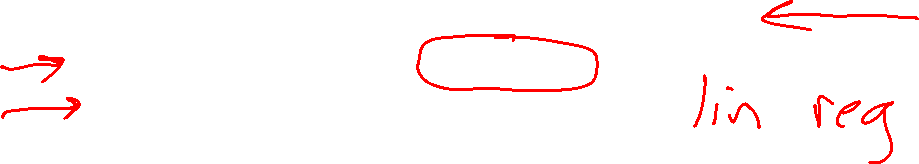 lin reg